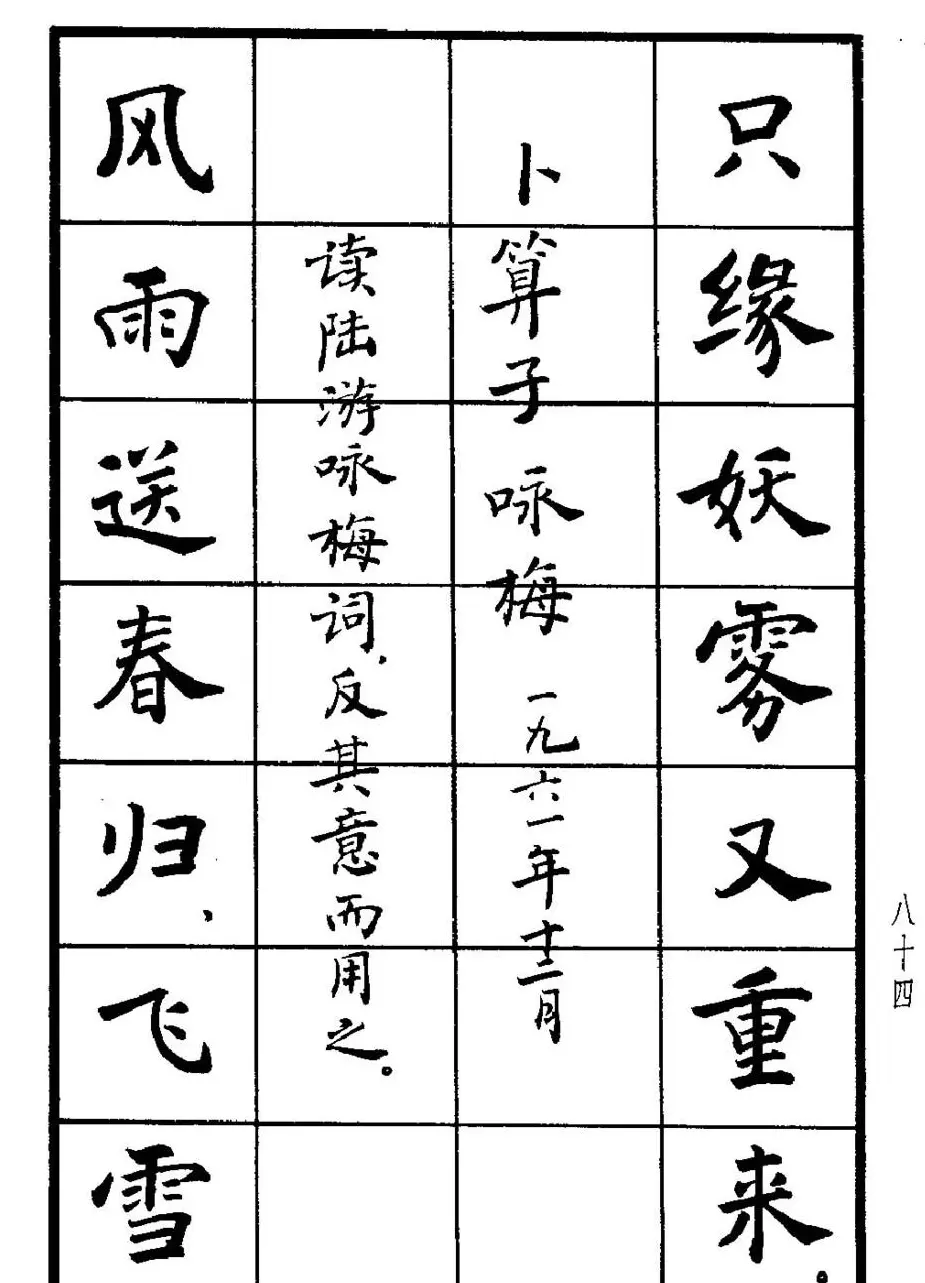 只缘妖雾又重来。
卜算子 咏梅 一九六一年十二月
读陆游咏梅词，反其意而用之。
风雨送春归，飞雪
八十四